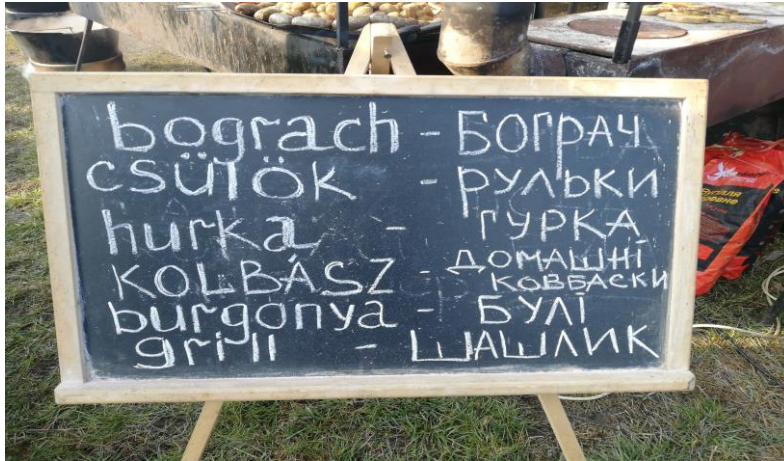 bograch - БОГРАЧ
CSÜLÖK - РУЛЬКИ
hurka - ГУРКА
KOLBÁSZ - ДОМАШНІ КОВБАСКИ
burgonya - БУЛІ
grill - ШАШЛИК